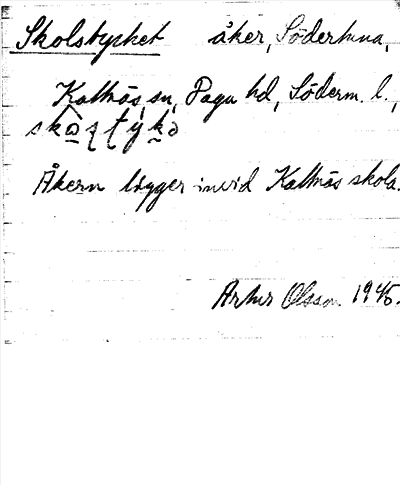 Skolstycket åker, Södertuna,
Kattnäs sn, Daga hd, Söderm. l.,
Åkern ligger invid Kattnäs skola.
Artur Olsson 1945.